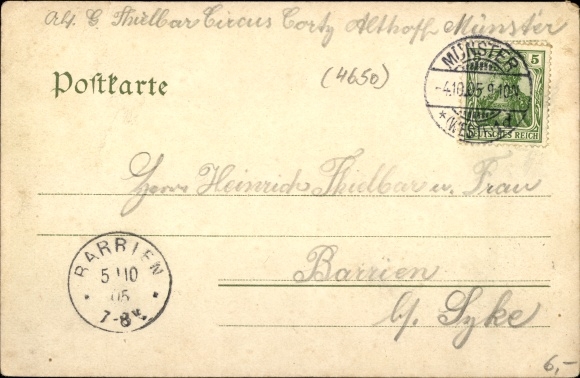 Abs. C. Thielbar Circus Corty Althoff Münster
Postkarte
(4650)
MÜNSTER
-4.10.05.9-10N
* (WESTF.) d
5
DEUTSCHES REICH
Herrn Heinrich Thielbar u. Frau
BARRIEN
5 10
05
7-8V.
Barrien
b/. Syke
6,-